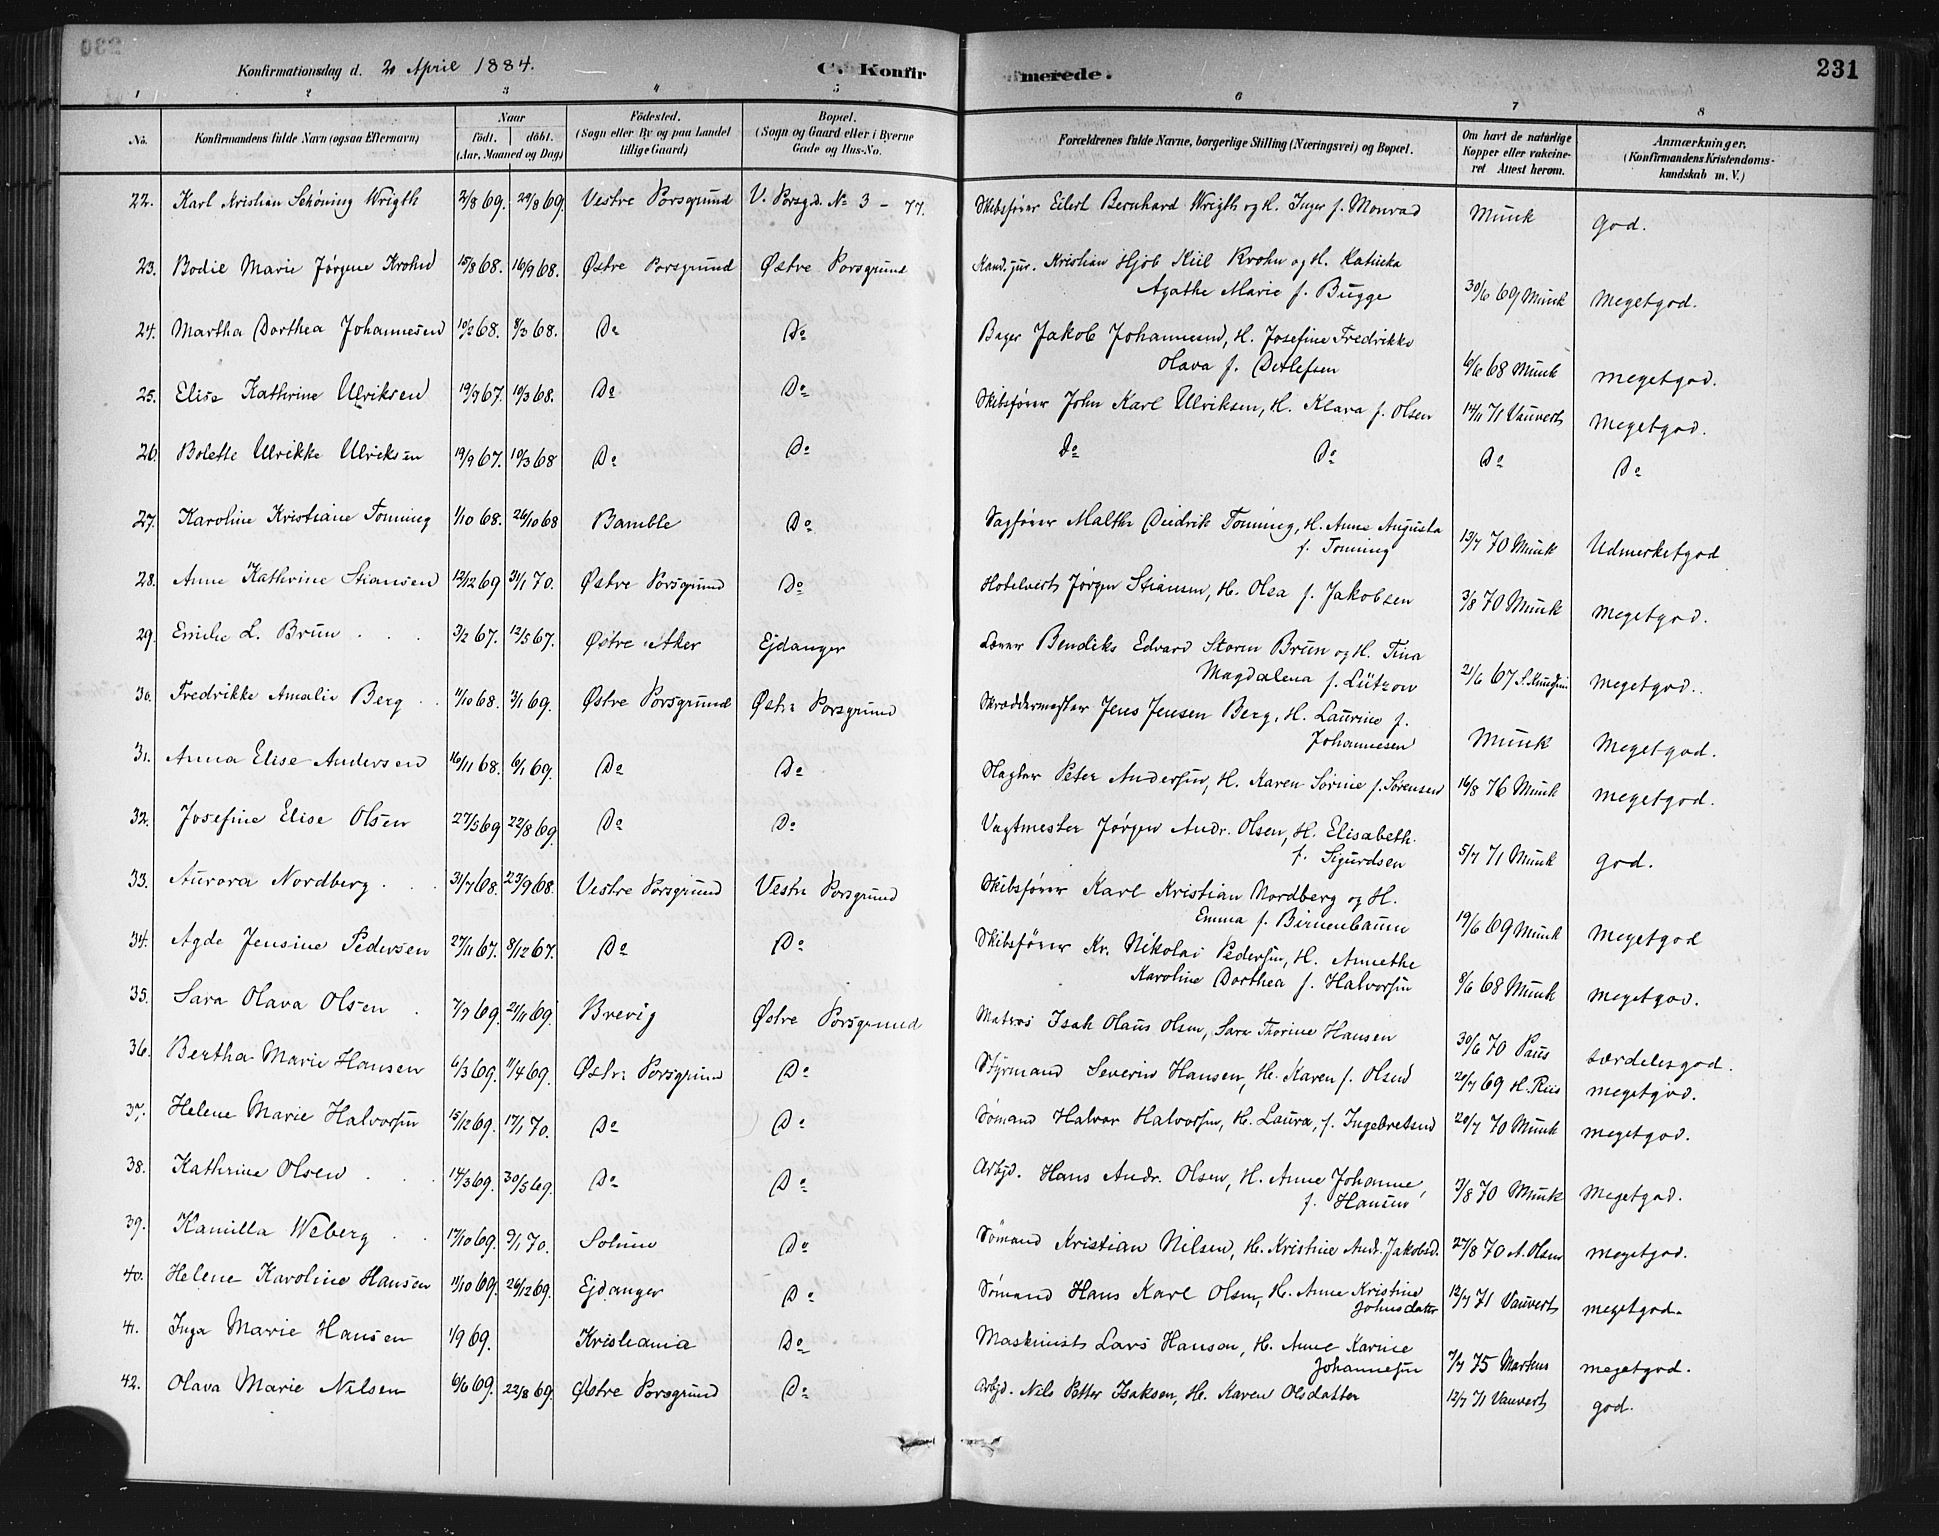 Konfirmationsdag d. 20 April 1884. C. Konfirmerede. 231
1 2 3 4 5 6 7 8
No. Konfirmandens fulde Navn (ogsaa Efternavn) Naar født. døbt. (Aar, Maaned og Dag) Fødested. (Sogn eller By og paa Landet tillige Gaard) Bopæl. (Sogn og Gaard eller i Byerne Gade og Hus-No. Forældrenes fulde Navne, borgerlige Stilling (Næringsvei) og Bopæl. Om havt de naturlige Kopper eller vakcineret Attest herom. Anmærkninger. (Konfirmandens Kristendomskundskab m. V.)
22. Karl Kristian Schöning Wrigth 2/8 69. 29/8 69. Vestre Porsgrund V. Porsgd. No 3 - 77. Skibsfører Eilert Bernhard Wrigth og H. Inger f. Monrad Munk God.
23. Bodil Marie Jørgine Krohn 15/8 68. 16/9 68. Østre Porsgrund Østre Porsgrund Kand. jur. Kristian Hjob Kiil Krohn og H. Katinka
Agathe Marie f. Bugge 30/6 69 Munk Megetgod.
24. Martha Dorthea Johannesen 10/2 68. 8/3 68. Do Do Bager Jakob Johannesen, H. Josefine Fredrikke
Olava f. Detlefsen 6/6 68 Munk megetgod.
25. Elise Kathrine Ulriksen 19/9 67. 10/3 68. Do Do Skibsfører John Karl Ulriksen, H. Klara f. Olsen 14/11 71 Vauvert Megetgod.
26. Bolette Ulrikke Ulriksen 19/9 67. 10/3 68 Do Do Do Do Do Do
27. Karoline Kristiane Tonning 1/10 68. 26/10 68 Bamble Do Sagfører Malthe Diedrik Tonning, H. Anne Augusta
f. Tonning 13/7 70 Munk Udmerketgod
28. Anne Kathrine Stiansen 12/12 69 31/1 70. Østre Porsgrund Do Hotelvert Jørgen Stiansen, H. Olea f. Jakobsen 3/8 70 Munk Megetgod.
29. Emilie L. Brun 3/2 67. 12/5 67. Østre Aker Ejdanger Lærer Bendiks Edvard Storm Brun og H. Tina
Magdalena f. Lützow 21/6 67 Megetgod.
30. Fredrikke Amalie Berg 11/10 68. 3/1 69. Østre Porsgrund Østre Porsgrund Skræddermester Jens Jensen Berg, H. Laurine f.
Johannesen Munk Megetgod.
31. Anna Elise Andersen 16/11 68. 6/1 69. Do Do Peter Andersen, H. Karen Sörine f. Sørensen 16/8 76 Munk megetgod.
32. Josefine Elise Olsen 27/5 69 22/8 69. Do Do Vagtmester Jørgen Andr. Olsen, H. Elisabeth
f. Sigurdsen 5/7 71 Munk god.
33. Aurora Nordberg 31/7 68. 23/9 68. Vestre Porsgrund Vestre Porsgrund Skibsfører Karl Kristian Nordberg og H.
Emma f. Birnenbaum 19/6 69 Munk Megetgod
34. Agde Jensine Pedersen 27/11 67. 8/12 67. Do Do Skibsfører Kr. Nikolai Pedersen, H. Annethe
Karoline Dorthea f. Halvorsen 8/6 68 Munk megetgod.
35. Sara Olava Olsen 7/9 69. 21/11 69. Brevig Østre Porsgrund Matros Isak Olaus Olsen, Sara Thorine Hansen 30/6 70 Paus særdelesgod.
36. Bertha Marie Hansen 6/3 69. 11/4 69. Østre Porsgrund Do Styrmand Severin Hansen, H. Karen f. Olsen 20/7 69 H. Riis megetgod.
37. Helene Marie Halvorsen 15/12 69. 17/1 70. Do Do Sømand Halvor Halvorsen, H. Laura, f. Ingebretsen 20/7 70 Munk megetgod.
38. Kathrine Olsen 14/3 69. 30/5 69. Do Do Arbjd. Hans Andr. Olsen, H. Anne Johanne,
f. Hansen 9/8 70 Munk Megetgod.
39. Kamilla Weberg 17/10 69. 9/1 70. Solum Do Sømand Kristian Nilsen, H. Kristine Andr. Jakobsd. 27/8 70 A. Olsen megetgod.
40. Helene Karoline Hansen 11/10 69. 26/12 69. Ejdanger Do Sømand Hans Karl Olsen, H. Anne Kristine
Johnsdatter 12/7 71 Vauvert megetgod.
41. Inga Marie Hansen 1/9 69. Kristiania Do Maskinist Lars Hanson, H. Anne Karine
Johannesen 9/7 75 megetgod.
42. Olava Marie Nilsen 6/6 69. 22/8 69. Østre Porsgrund Do Arbjd. Nils Petter Isaksen, H. Karen Olsdatter 12/7 71 Vauvert god.